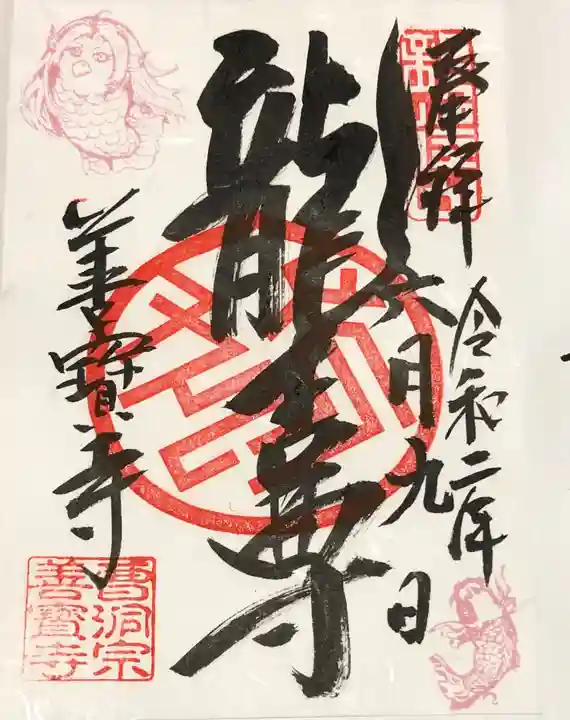 奉拝
令和二年
六月九日
龍寿
善寳寺
曹洞宗
善寳寺